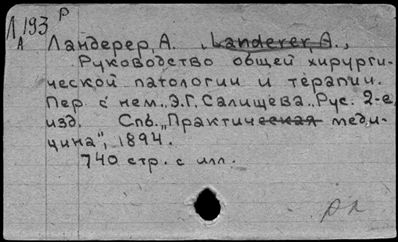 Л 193 Р
А
Ландерер, А. , Landerer, A.,
Руководство общей хирурги-
ческой патологии и терапии.
Пер с нем., Э.Г. Салищева. Рус. 2-е
изд. Спб. „Практическая меди-
цина", 1894.
740 стр. с илл.